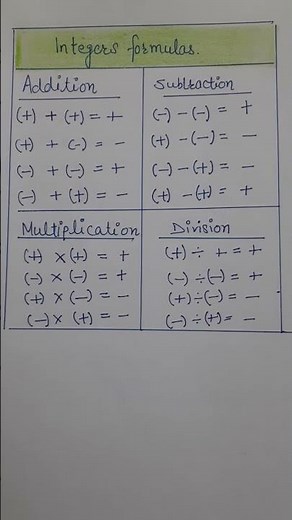 Integers formulas.
Addition
(+) + (+) = +
(+) + (-) = -
(-) + (-) = +
(-) + (+) = -
Subtraction
(-) - (-) = +
(+) - (-) = -
(-) - (+) = -
(+) - (+) = +
Multiplication
(+) × (+) = +
(-) × (-) = +
(+) × (-) = -
(-) × (+) = -
Division
(+) ÷ + = +
(-) ÷ (-) = +
(+) ÷ (-) = -
(-) ÷ (+) = -